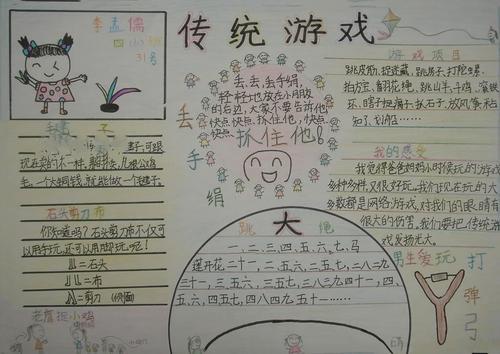 传统游戏
李孟儒
四
31号
毽子
毽子,可跟
现在卖的不一样,
毛,一个大铜钱,就能做一个毽子。
石头剪刀布
你知道吗?石头剪刀布不仅可
以用手玩,还可以用脚玩呢!
=石头
=布
=剪刀
老鹰捉小鸡
丢手绢
丢,丢,丢手绢,
轻轻地放在小朋友
的后边,大家不要告诉他
快点快点抓住他,快点
快点
抓住他。
跳大绳
一、二、三、四、五、六、七、马
莲开花二十一,二五六,二五七,二八二九
三十一,三五六,三五七,三八三九四十一,四
五六,四五七,四八四九五十一……
游戏项目
跳皮筋,捉迷藏,跳房子,打陀螺,
拍方宝,翻花绳,跳山羊,斗鸡,滚铁
环,瞎子捉拐子,抓石子,放风筝,木头
人,
我的感受
我觉得爸爸妈妈小时候玩的游戏
多种多样,又很好玩。我们现在玩的大
多数都是网络游戏,对我们的眼睛有
很大的伤害。我们要把传统游
戏发扬光大。
男生爱玩
打弹弓